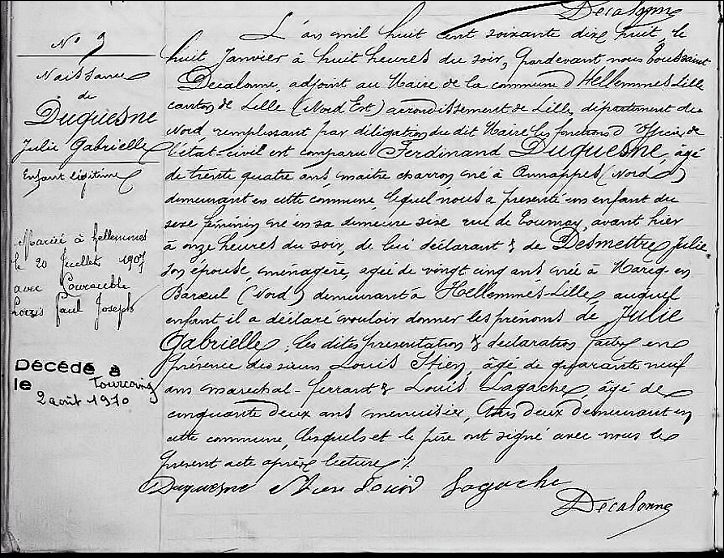 Decalonne
N° 9
Naissance
de
Duquesne
Julie Gabrielle
Enfant légitime
Mariée à Hellemmes
le 20 Juillet 1907
avec
Louis Paul Joseph
Décédé à
le Tourcoing
2 août 1970
L'an mil huit cent soixante dix huit le
huit Janvier à huit heures du soir, pardevant nous Toussaint
Decalonne, adjoint au Maire de la commune d'Hellemmes-Lille
canton de Lille (Nord Est) arrondissement de Lille, département du
Nord remplissant par délégation du dit Maire les fonctions d'Officier de
l'état-civil est comparu Ferdinand Duquesne, âgé
de trente quatre ans maître charron né à Annappes (Nord)
demeurant en cette commune lequel nous a présenté un enfant du
sexe féminin né en sa demeure sise rue de Tournay, avant hier
à onze heures du soir, de lui déclarant & de Desmettre Julie
son épouse, ménagère, agée de vingt cinq ans née à Marcq en
Baroeul (Nord) demeurant à Hellemmes-Lille auquel
enfant il a déclaré vouloir donner les prénoms de Julie
Gabrielle; les dites présentation & déclaration faites en
présence des sieurs Louis Stien, âgé de quarante neuf
ans marechal-ferrant & Louis Lagache, âgé de
cinquante deux ans menuisier, tous deux demeurant en
cette commune, lesquels et le père ont signé avec nous le
présent acte après lecture ./.
Duquesne Stien Louis Lagache
Decalonne